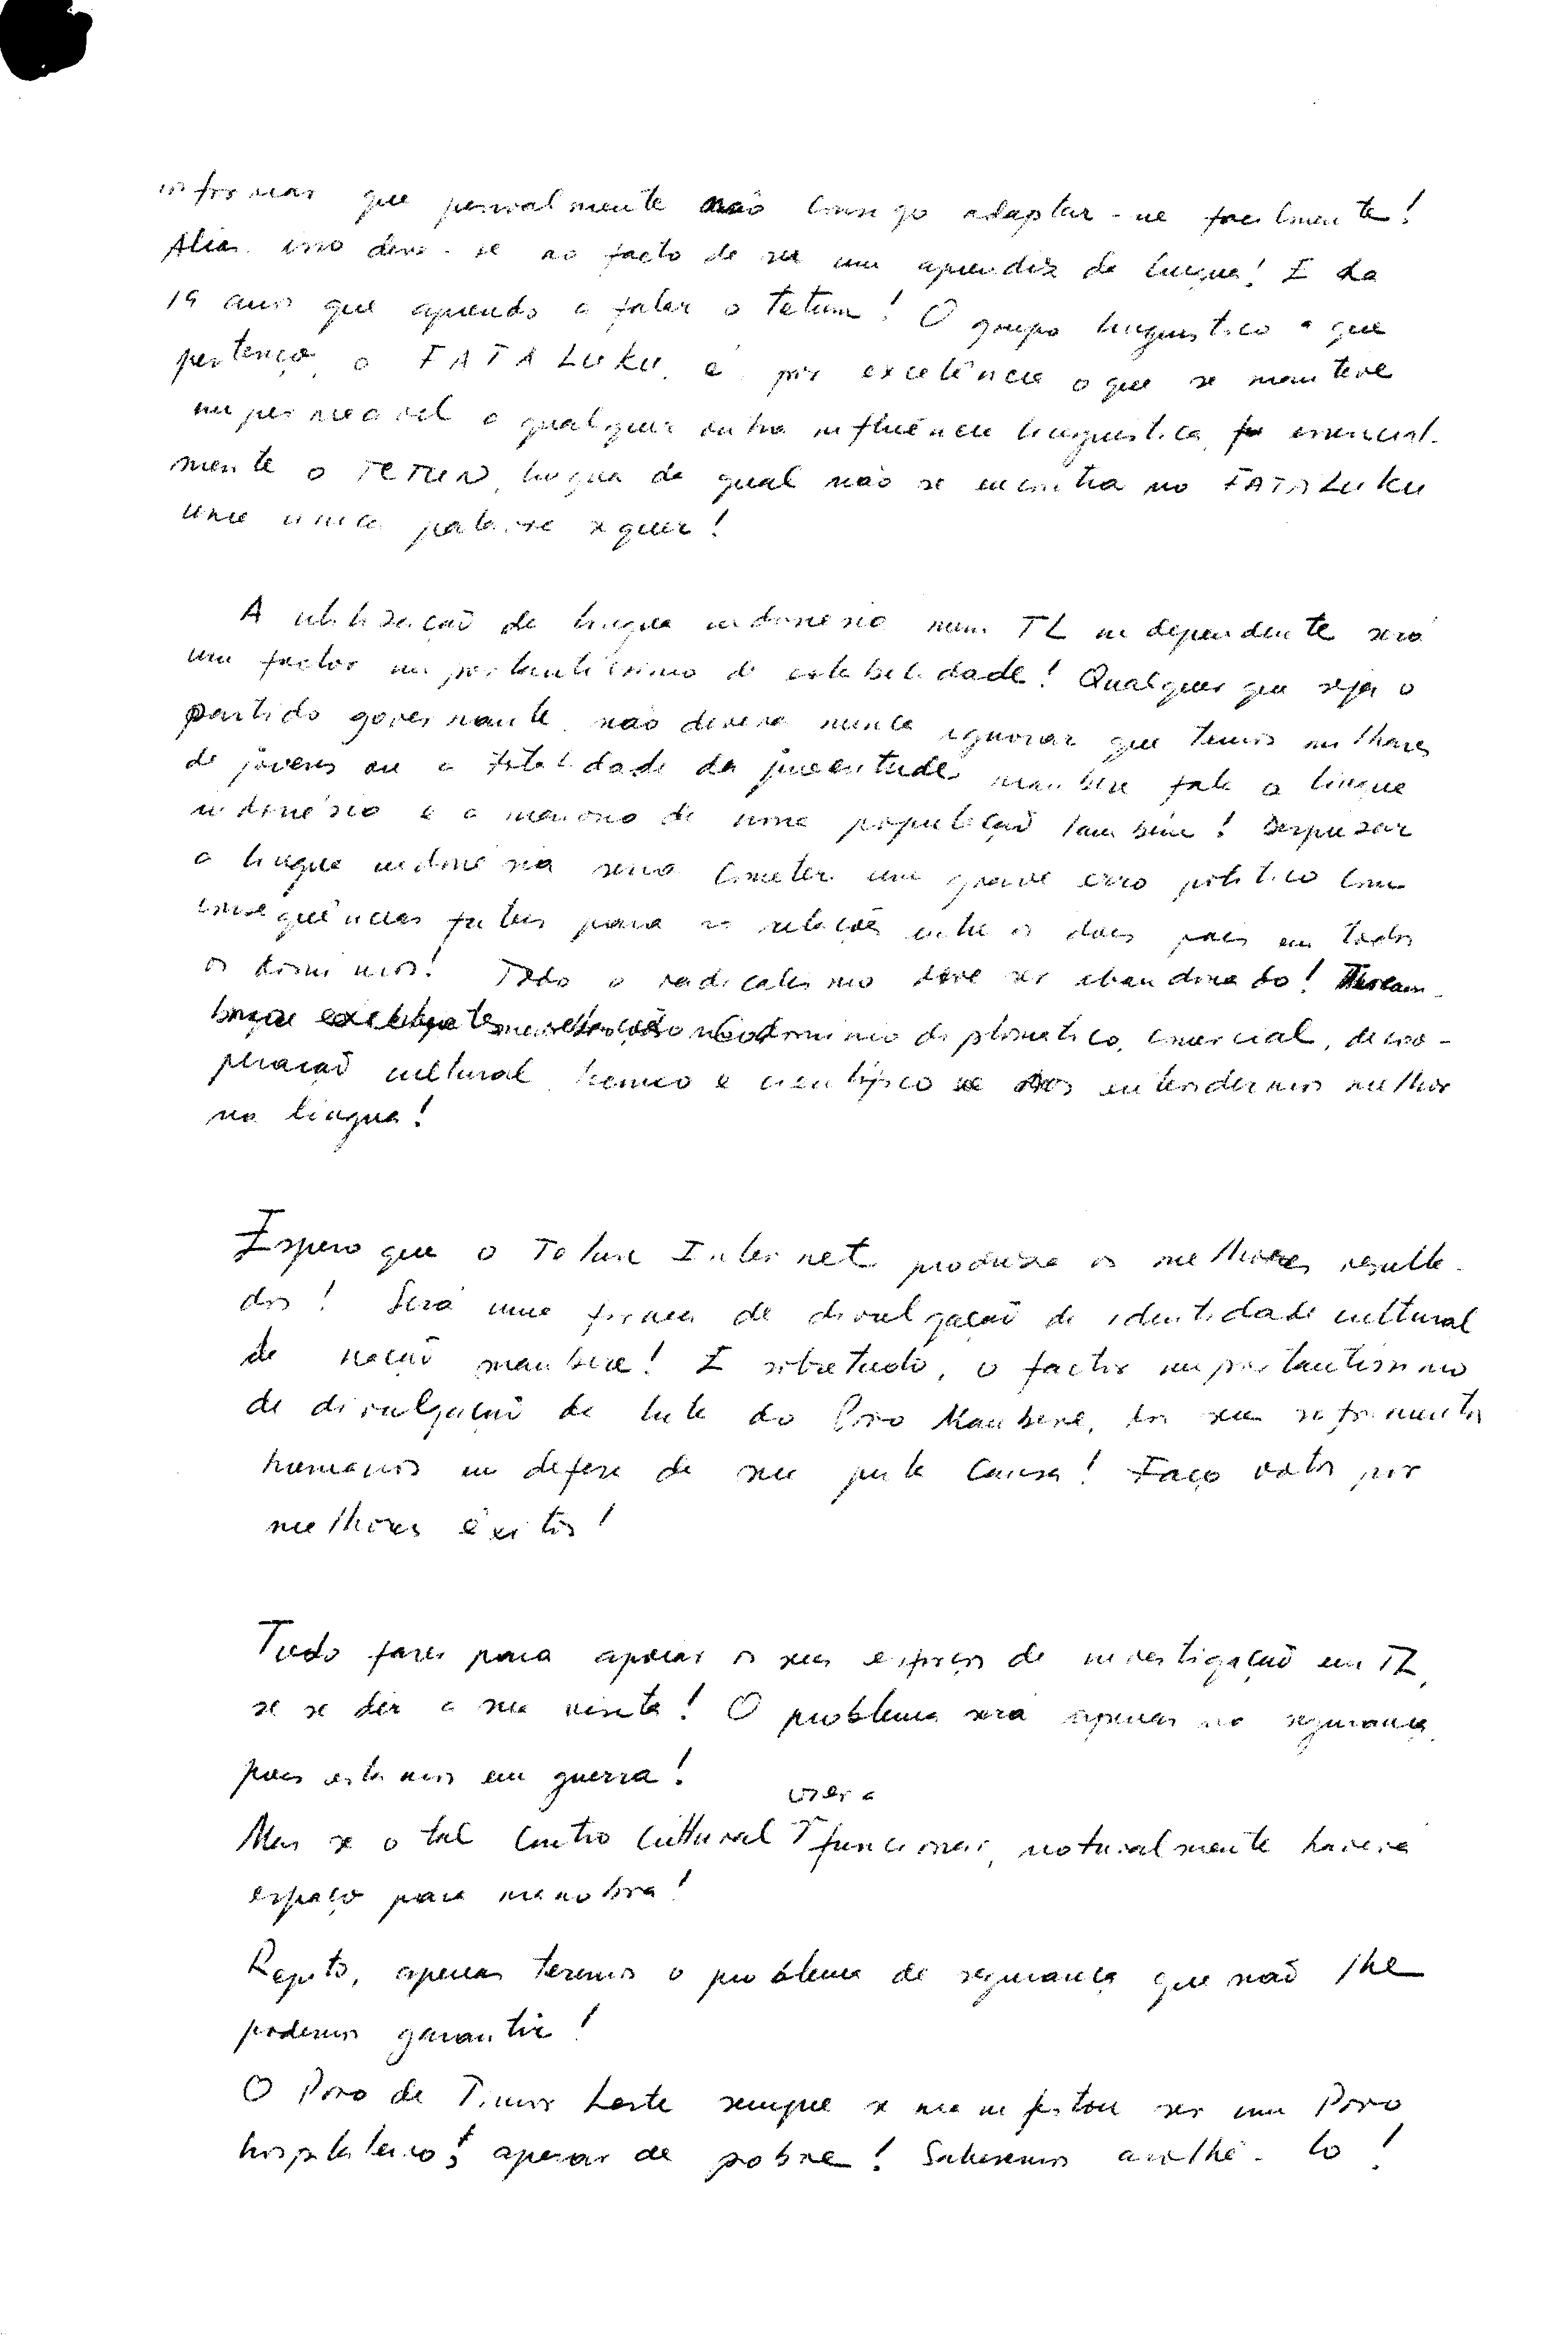 informar que pessoalmente não consigo adaptar-me facilmente!
Aliás isso deve-se ao facto de ser um aprendiz da língua! E há
19 anos que aprendo a falar o tetum! O grupo linguístico a que
pertenço, o FATALUKU, é por excelência o que se manteve
impermeável a qualquer outra influência linguística, essencial-
mente o TETUN, língua da qual não se encontra no FATALUKU
uma única palavra sequer!
A utilização da língua indonésia num TL independente será
um factor importantíssimo de estabilidade! Qualquer que seja o
partido governante, não deverá nunca ignorar que temos milhares
de jovens ou a totalidade da juventude maubere fala a língua
indonésia e a maioria de uma população também! Desprezar
a língua indonésia seria cometer um grave erro político com
consequências fatais para as relações entre os dois país em todos
os domínios! Todo o radicalismo deve ser abandonado!
domínio diplomático, comercial, de coo-
peração cultural, técnico e científico se nos entendermos melhor
na língua!
Espero que o Tetum Internet produza os melhores resulta-
dos! Será uma forma de divulgação da identidade cultural
da nação maubere! E sobretudo, o factor importantíssimo
de divulgação da luta do Povo Maubere, dos seus sofrimentos
humanos em defesa da sua justa causa! Faço votos por
melhores êxitos!
Tudo farei para apoiar os seus esforços de investigação em TL,
se se der a sua visita! O problema será apenas na segurança,
pois estamos em guerra!
vier a
Mas se o tal Centro Cultural funcionar, naturalmente haverá
espaço para manobra!
Repito, apenas teremos o problema de segurança que não lhe
podemos garantir!
O Povo de Timor Leste sempre se manifestou ser um Povo
hospitaleiro, apesar de pobre! Saberemos acolhê-lo!